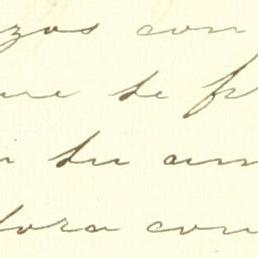 zos con
ue se
n su am
dora con